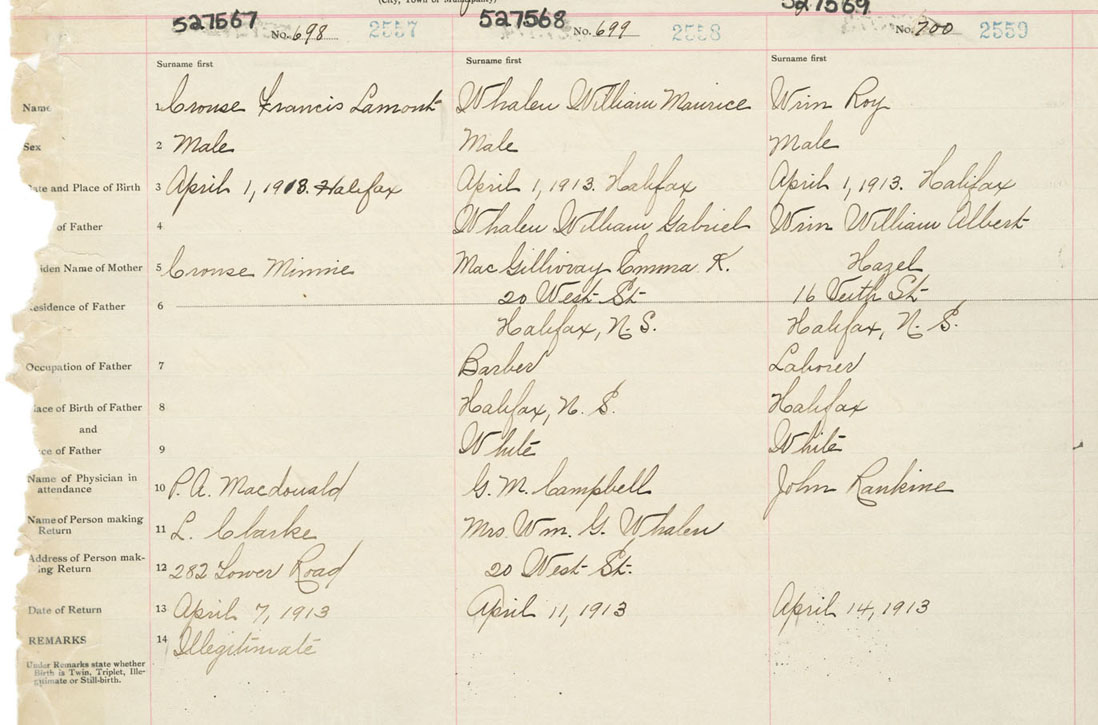 (City, Town or Municipality)
527567 527568 527569
No. 698 2557 No. 699 2558 No. 700 2559
Surname first Surname first Surname first
Name 1 Crouse Francis Lamont Whalen William Maurice Wrin Roy
Sex 2 Male Male Male
ate and Place of Birth 3 April 1, 1913. Halifax April 1, 1913. Halifax April 1, 1913. Halifax
of Father 4 Whalen William Gabriel Wrin William Albert
iden Name of Mother 5 Crouse Minnie Mac Gillivray Emma K. Hazel
esidence of Father 6 20 West St. 16 St.
Halifax, N. S. Halifax, N. S.
Occupation of Father 7 Barber Laborer
ace of Birth of Father 8 Halifax, N. S. Halifax
and
ce of Father 9 White White
Name of Physician in attendance 10 P. A. Macdonald G. M. Campbell John Rankine
Name of Person making Return 11 L. Clarke Mrs. Wm. G. Whalen
Address of Person mak-ing Return 12 282 Lower Road 20 West St.
Date of Return 13 April 7, 1913 April 11, 1913 April 14, 1913
REMARKS 14 Illegitimate
Under Remarks state whether
Birth is Twin, Triplet, Ille-
gitimate or Still-birth.